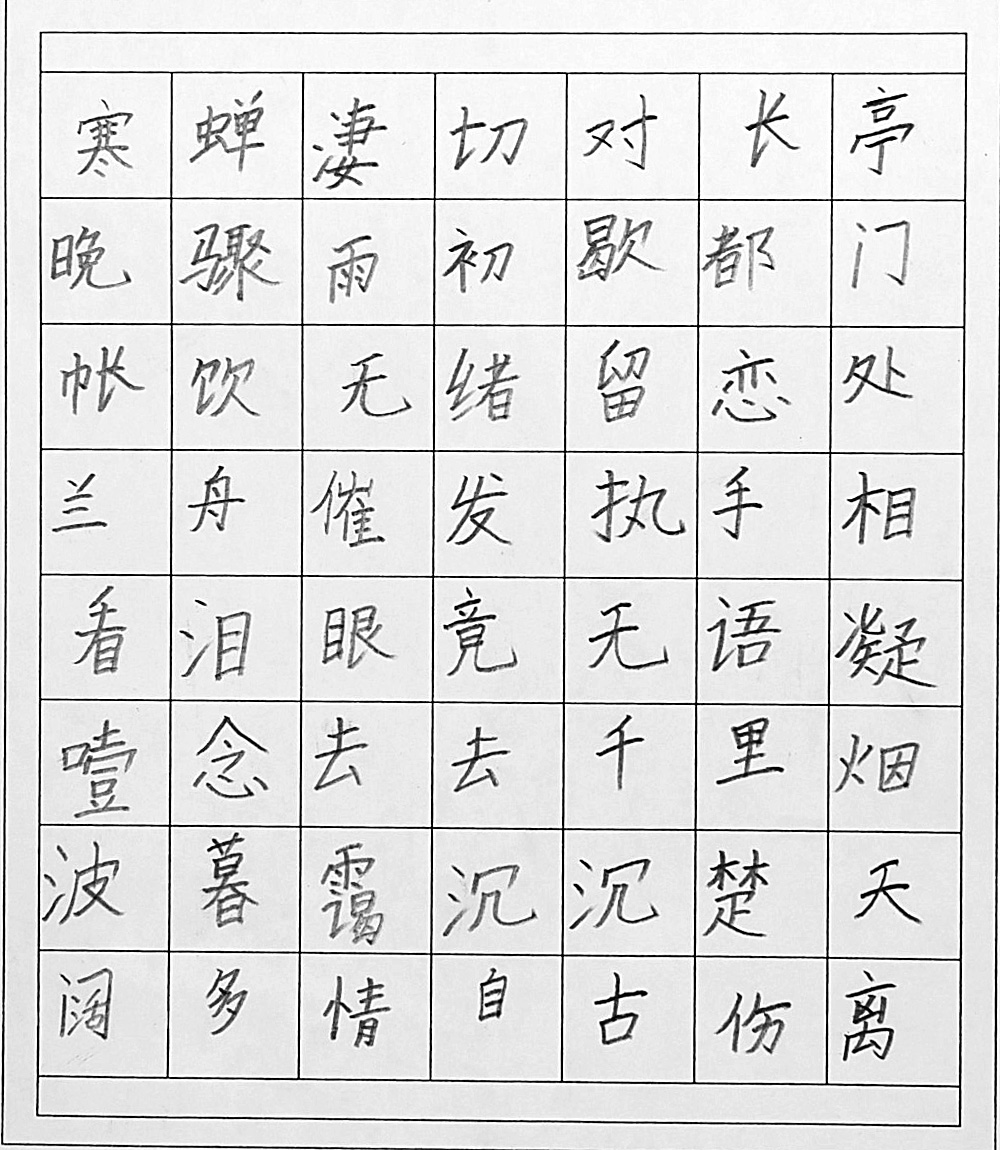 寒蝉凄切对长亭
晚骤雨初歇都门
帐饮无绪留恋处
兰舟催发执手相
看泪眼竟无语凝
噎念去去千里烟
波暮霭沉沉楚天
阔多情自古伤离